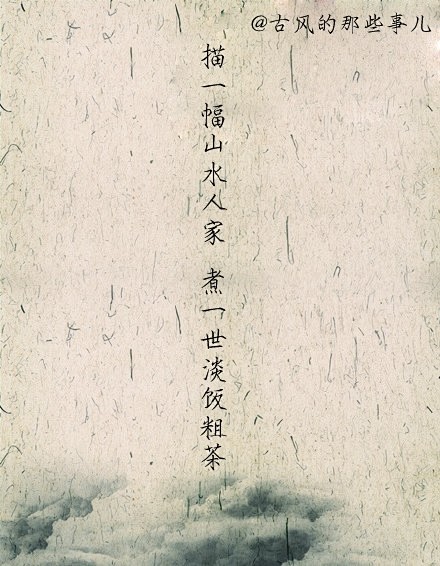 @古风的那些事儿
描一幅山水人家 煮一世淡饭粗茶